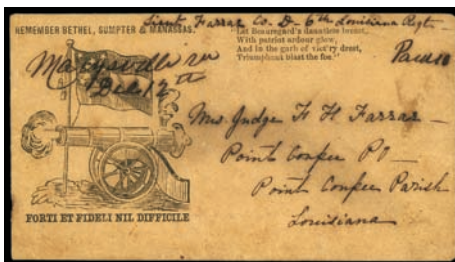 Lieut Farrar Co. D - 6th Louisiana Regt -
REMEMBER BETHEL, SUMPTER & MANASSAS.
Let Beauregard's dauntless breast,
With patriot ardour glow,
And in the garb of vict'ry drest,
Triumphant blast the foe."
Marysville
Dec 12th
Mrs. Judge F H Farrar -
Point Coupee PO -
Point Coupee Parish
Louisiana
FORTI ET FIDELI NIL DIFFICILE